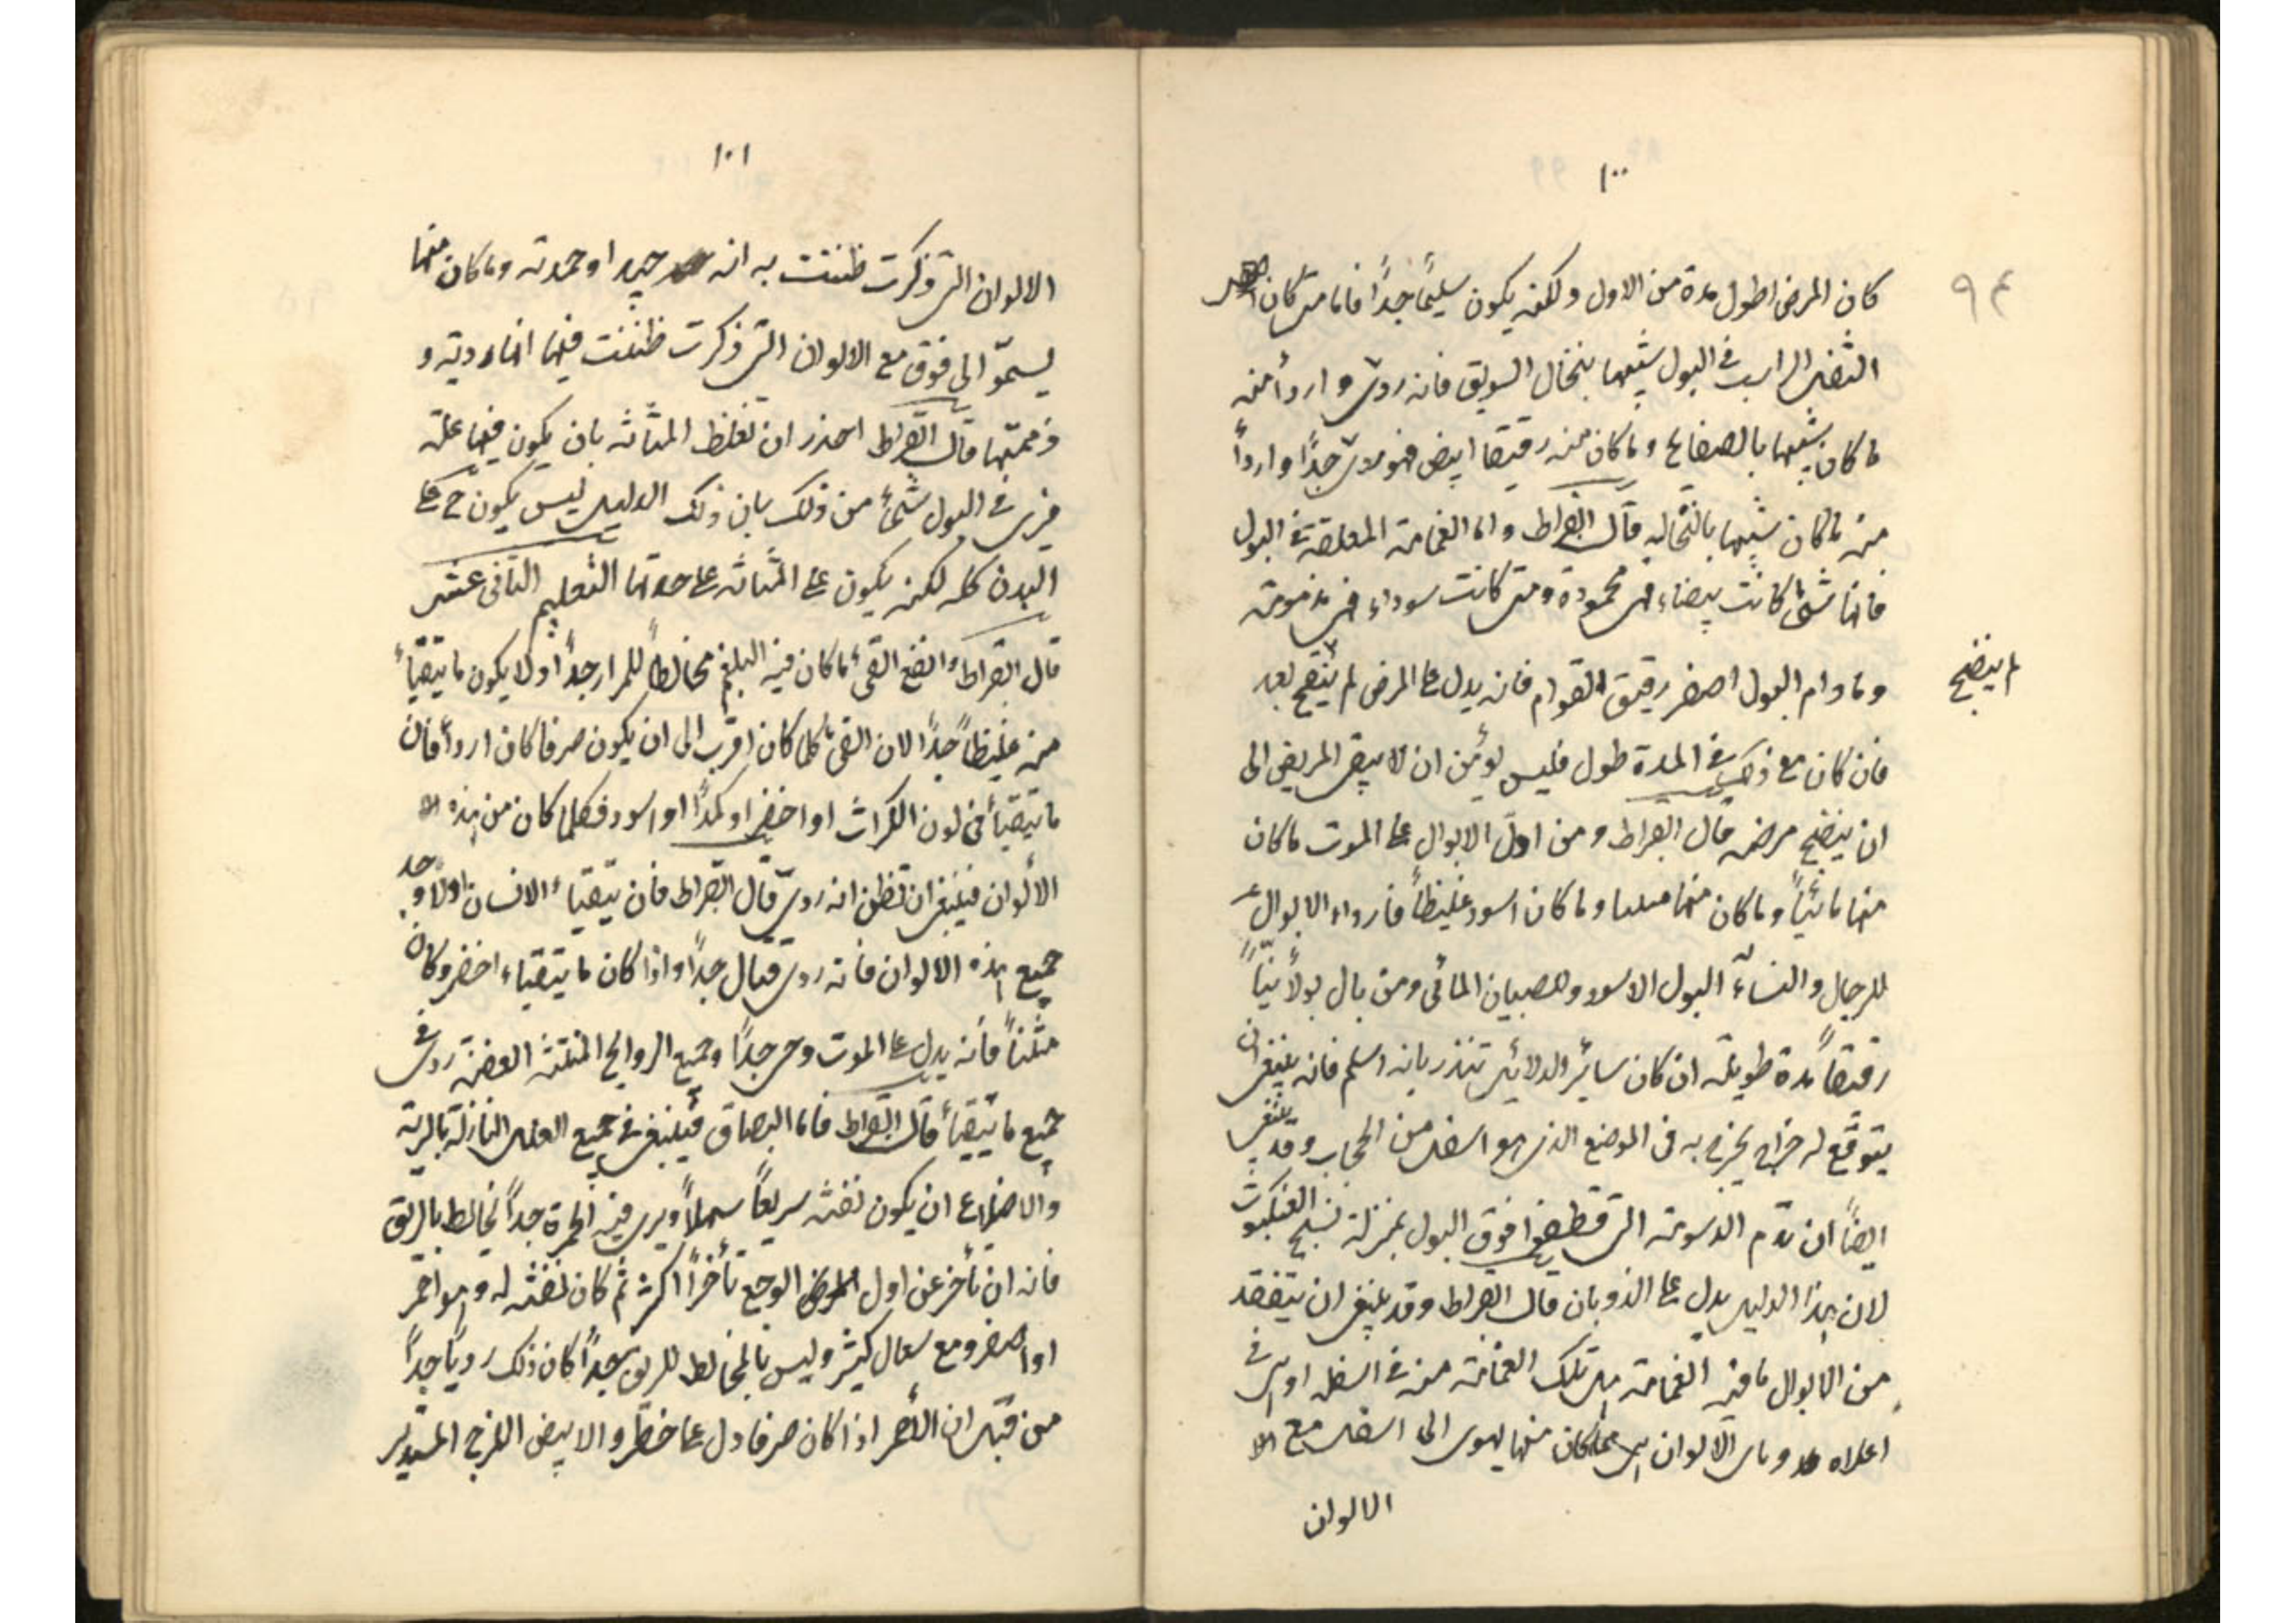 ١٠٠
٩٤
كان المرض اطول مدة من الاول ولكنه يكون سليمًا جدًا فاما متى كان
الثفل الراسب فى البول شبيها بنخال السويق فانه ردى واردأ منه
ما كان شبيها بالصفايح وما كان منه رقيقا ابيض فهو ردى جدًا واردأ
منه ما كان شبيها بالنخاله قال ابقراط واما الغمامة المعلقة فى البول
فانها متى كانت بيضاء فهى محمودة ومتى كانت سوداء فهى مذمومة
وما دام البول اصفر رقيق القوام فانه يدل على المرض لم ينضج بعد
لم ينضج
فان كان مع ذلك فى المدة طول فليس يؤمن ان لا يبقى المريض الى
ان ينضج مرضه قال ابقراط ومن اول الابوال على الموت ما كان
منها مائيًا وما كان منها منتنا وما كان اسود غليظًا فارداء الابوال
للرجال والنساء البول الاسود وللصبيان المائى ومن بال بولًا نيًا
رقيقًا مدة طويلة ان كان سائر الدلائل تنذر بانه اسلم فانه ينبغى ان
يتوقع له خراج يخرج به فى الموضع الذى هو اسفل من الحجاب وقد ينبغى
ايضًا ان تذم الدسومة التى قطفوا فوق البول بمنزلة نسج العنكبوت
لان هذا الدليل يدل على الذوبان قال ابقراط وقد ينبغى ان يتفقد
من الابوال ما فيه الغمامة هل تلك الغمامة منه فى اسفله او هى فى
اعلاه وباى الالوان هى فما كان منها يهوى الى اسفل مع
الالوان
١٠١
الالوان التى ذكرت ظننت به انه جيد او حمدته وما كان منها
يسموّ الى فوق مع الالوان التى ذكرت ظننت فيها انها ردية و
ذممتها قال ابقراط احذر ان تغلظ المثانه بان يكون فيها علة
فيرى فى البول شئ من ذلك بان ذلك الدليل ليس يكون ح على
البدن كله لكنه يكون على المثانه على حدتها التعليم الثانى عشر
قال ابقراط وانفع القئ ما كان فيه البلغم مخالطًا للمرار جدًا ولا يكون ما يتقيأ
منه غليظًا جدًا لان القئ كلما كان اقرب الى ان يكون صرفا كان اردأ فان
ما يتقيأ فى لون الكراث او اخضر او كمدًا او اسود فكلما كان من هذه
الألوان فينبغى ان تظن انه ردى قال ابقراط فان يتقياء الانسان الواحد
جميع هذه الالوان فانه ردى قتال جدًا واذا كان ما يتقياء اخضر وكان
منتنًا فأنه يدل على الموت وحى جدًا وجميع الروايح المنتنة العفنة ردى فى
جميع ما يتقيأ قال ابقراط فاما البصاق فينبغى فى جميع العلل النازلة بالرية
والاضلاع ان يكون نفثه سريعًا سهلًا ويرى فيه الحمرة جدًا تخالط بالريق
فانه ان تأخر عن اول الوجع تأخرًا اكثر ثم كان نفثه له وهو احمر
او اصفر ومع سعال كثير وليس بالمخالط للريق جدًا كان ذلك رديًا جدًا
من قبل ان الأحمر اذا كان صرفا دل على خطر والابيض اللزج المستدير